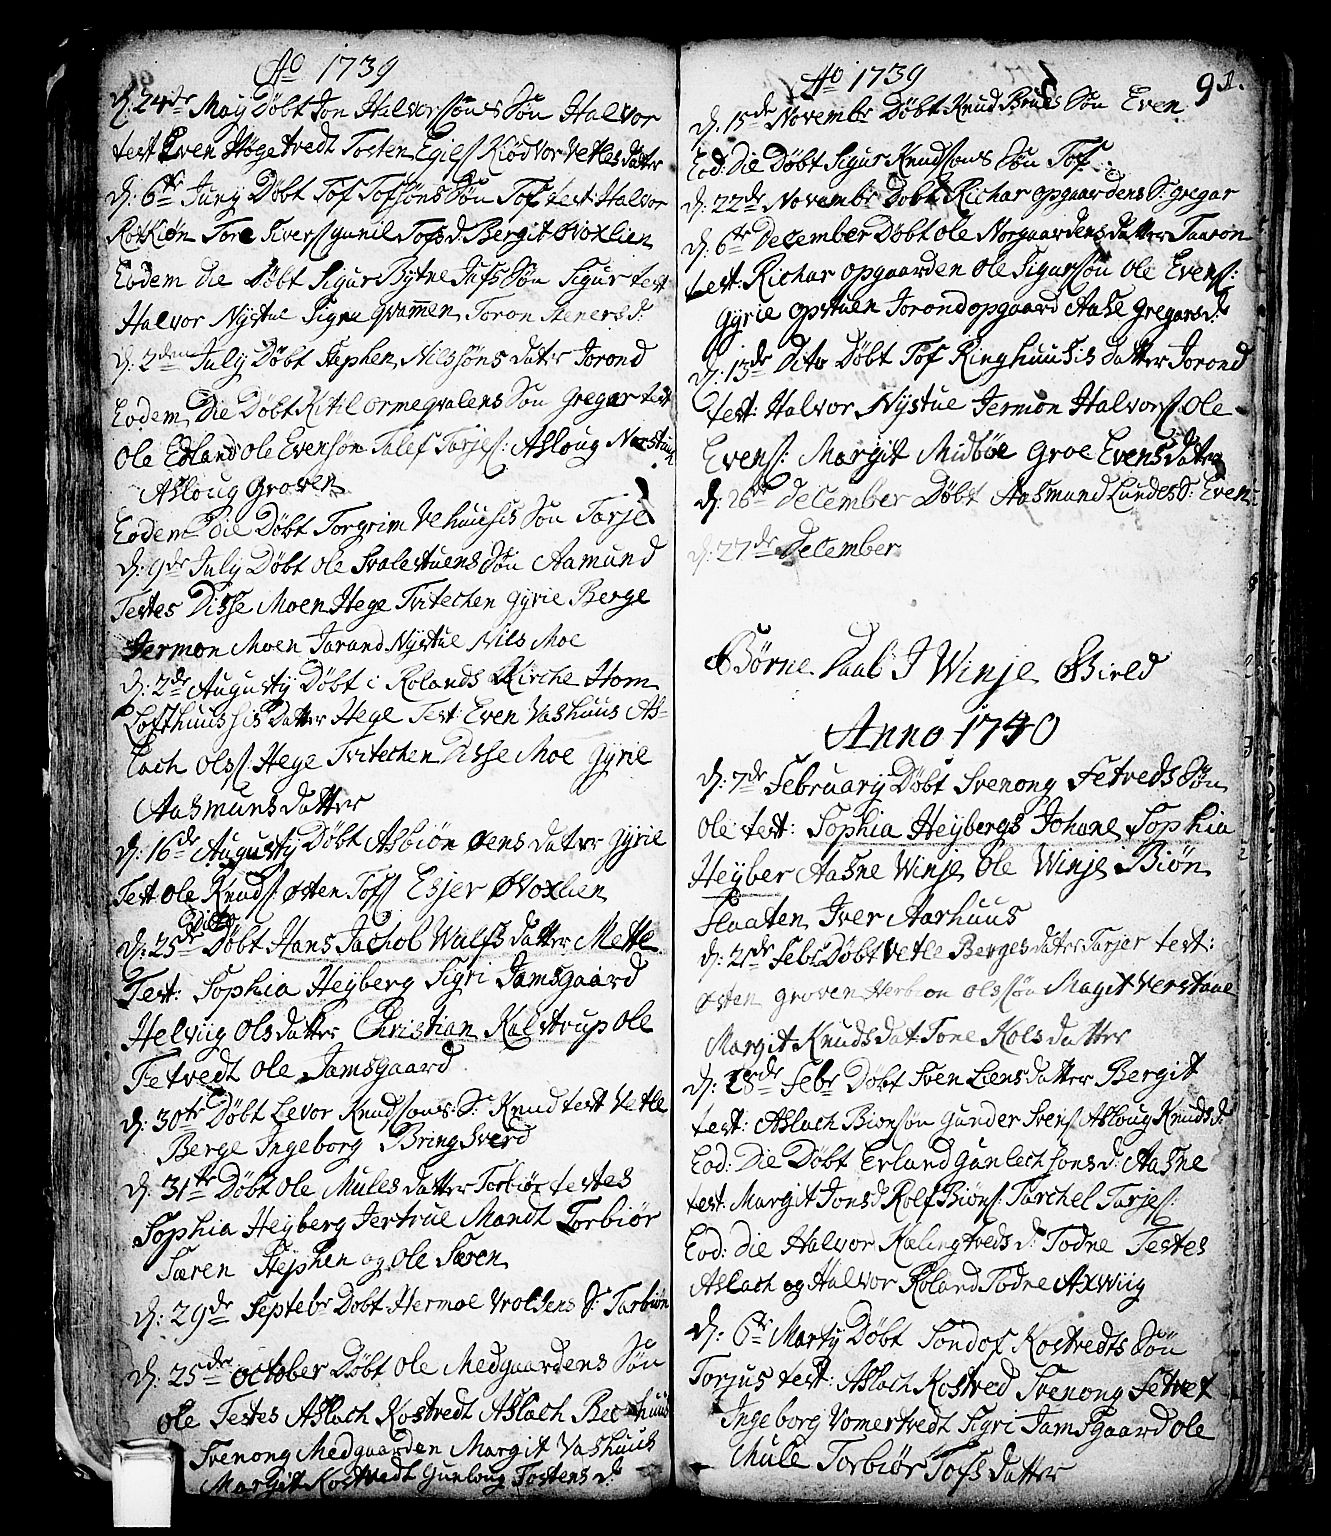 Ao 1739
d. 24de May Døbt Jon Halvorssøns Søn Halvor
test Even Høgetvedt Tosten Egils. Kiødvor Vetles datter
d: 6te Juny Døbt Tof Tofsøns Søn Tof test: Halvor
Rotkiøn Tore Sivers Gunil Tofs d. Bergit Øvoxlien
Eodem die Døbt Sigur Bytne Jufs Søn Sigur test
Halvor Nystue Signe Qvamen Toron Stenersd:
d. 2den July Døbt Stephen Nilssøns dater Jorond
Eodem Die Døbt Kitil Ormeqvalens Søn Gregar test
Ole Edland Ole Evensøn Talef Tarjes: Asloug Norstuen
Asloug Groven
Eodem die Døbt Torgrim Vehuusis Søn Tarje
d: 9de July Døbt Ole Svalestuens Søn Aamund
Testes Disse Moen Hege Tvitechen Gyrie Berge
Jermon Moen Jorand Nystue Nils Moe
d: 2de Augusty Døbt i Rolands Kirche Hom
Lofthuussis Datter Hege Test: Even Vashuus As-
lach Olss. Hege Tvitechen Disse Moe Gyrie
Aasmunsdatter
d: 16de Augusty Døbt Asbiøn Øens dater Gyrie
Test Ole Knuds. Østen Tofs Esjer Øvoxlien
Ditto
d: 25de Døbt Hans Jachol Wulfs datter Mette
Test: Sophia Heyberg Sigri Jamsgaard
Helviig Olsdatter Christian Kalstrup Ole
Fetvedt Ole Jamsgaard
d: 30te Døbt Levor Knudsøns S: Knud test Vetle
Berge Ingeborg Bringsverd
d: 31te Døbt Ole Mules datter Torbiør testes
Sophia Heyberg Jertrue Mandt Torbiør
Særen Stephen og Ole Særen
d: 29de Septebr Døbt Hermoe Vroldens S: Torbiøn
d: 25de October Døbt Ole Medgaardens Søn
Ole Testes Aslach Kostvedt Aslach Bechhuus
Svenong Medgaarden Margit Vashuus
Margit Kostvedt Gunloug Tostens d:
Ao 1739 91.
d. 15de Novembr Døbt Knud Bruls Søn Even
Eod: die Døbt Sigur Knudsøns Søn Tof
d: 22de Novembr Døbt Richar Opgaardens S: Gregar
d. 6te December Døbt Ole Norgaardens datter Taaron
test: Richar Opgaarden Ole Sigurssøn Ole Evens:
Gyrie Opstuen Jorond Opgaard Aase Gregars d:
d: 13de Dito Døbt Tof Ringhuusis datter Jorond
test: Halvor Nystue Jermon Halvors. Ole
Evens: Margit Midbøe Groe Evensdatter
d: 26de December Døbt Aasmund Lundes S: Even
d: 27de December
Børne Daab I Winje Gield
Anno 1740
d: 7de February Døbt Svenong Fetveds Søn
Ole test: Sophia Heybergs Johane Sophia
Heyber Aasne Winje Ole Winje Biøn
Flaaten Iver Aarhuus
d: 21de Febr Døbt Vetle Berges dater Tarjer test:
Østen Groven Herbion Olssøn Magit Verstaue
Margit Knudsdat Tone Kolsdatter
d: 28de Febr Døbt Sven Liens datter Bergit
test: Aslach Bionsøn Gunder Svens. Asloug Knuds d:
Eod: Die Døbt Erland Gunlechsøns d: Aasne
test: Margit Jonsd Rolf Biøns. Tarchel Tarjes:
Eod: die Halvor Kælingtveds d: Todne Testes
Aslach og Halvor Roland Todne Axwiig
d: 6te Marty Døbt Sondof Kostvedts Søn
Torjus test: Aslach Kostved Svenong Fetvet
Ingeborg Vomertvedt Sigri Jamsgaard Ole
Mule Torbiør Tofsdatter